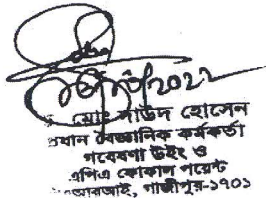 ২০২২
মোঃ সাউদ হোসেন
প্রধান বৈজ্ঞানিক কর্মকর্তা
গবেষণা উইং ও
এপিএ ফোকাল পয়েন্ট
গাজীপুর-১৭০১